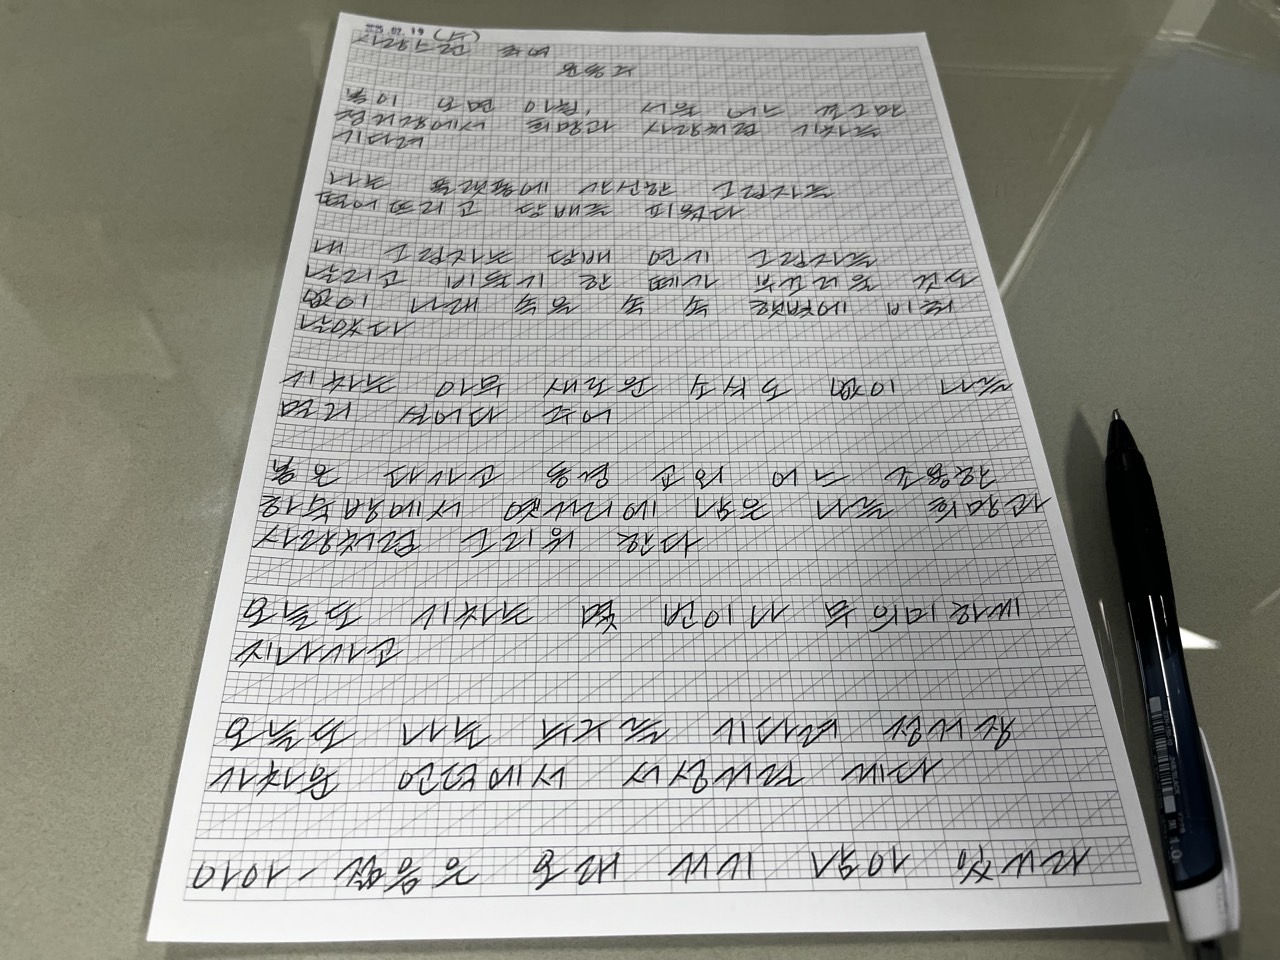 2025.02.19 (수)
사랑스런 추억
윤동주
봄이 오면 아침, 서울 어느 쪼그만
정거장에서 희망과 사랑처럼 기차를
기다려
나는 플랫폼에 간신한 그림자를
떨어뜨리고 담배를 피웠다
내 그림자는 담배 연기 그림자를
날리고 비둘기 한 떼가 부끄러울 것도
없이 나래 속을 속 속 햇빛에 비춰
날았다
기차는 아무 새로운 소식도 없이 나를
멀리 실어다 주어
봄은 다 가고 동경 교외 어느 조용한
하숙방에서 옛거리에 남은 나를 희망과
사랑처럼 그리워 한다
오늘도 기차는 몇 번이나 무의미하게
지나가고
오늘도 나는 누구를 기다려 정거장
가차운 언덕에서 서성거릴 게다
아아- 젊음은 오래 거기 남아 있거라